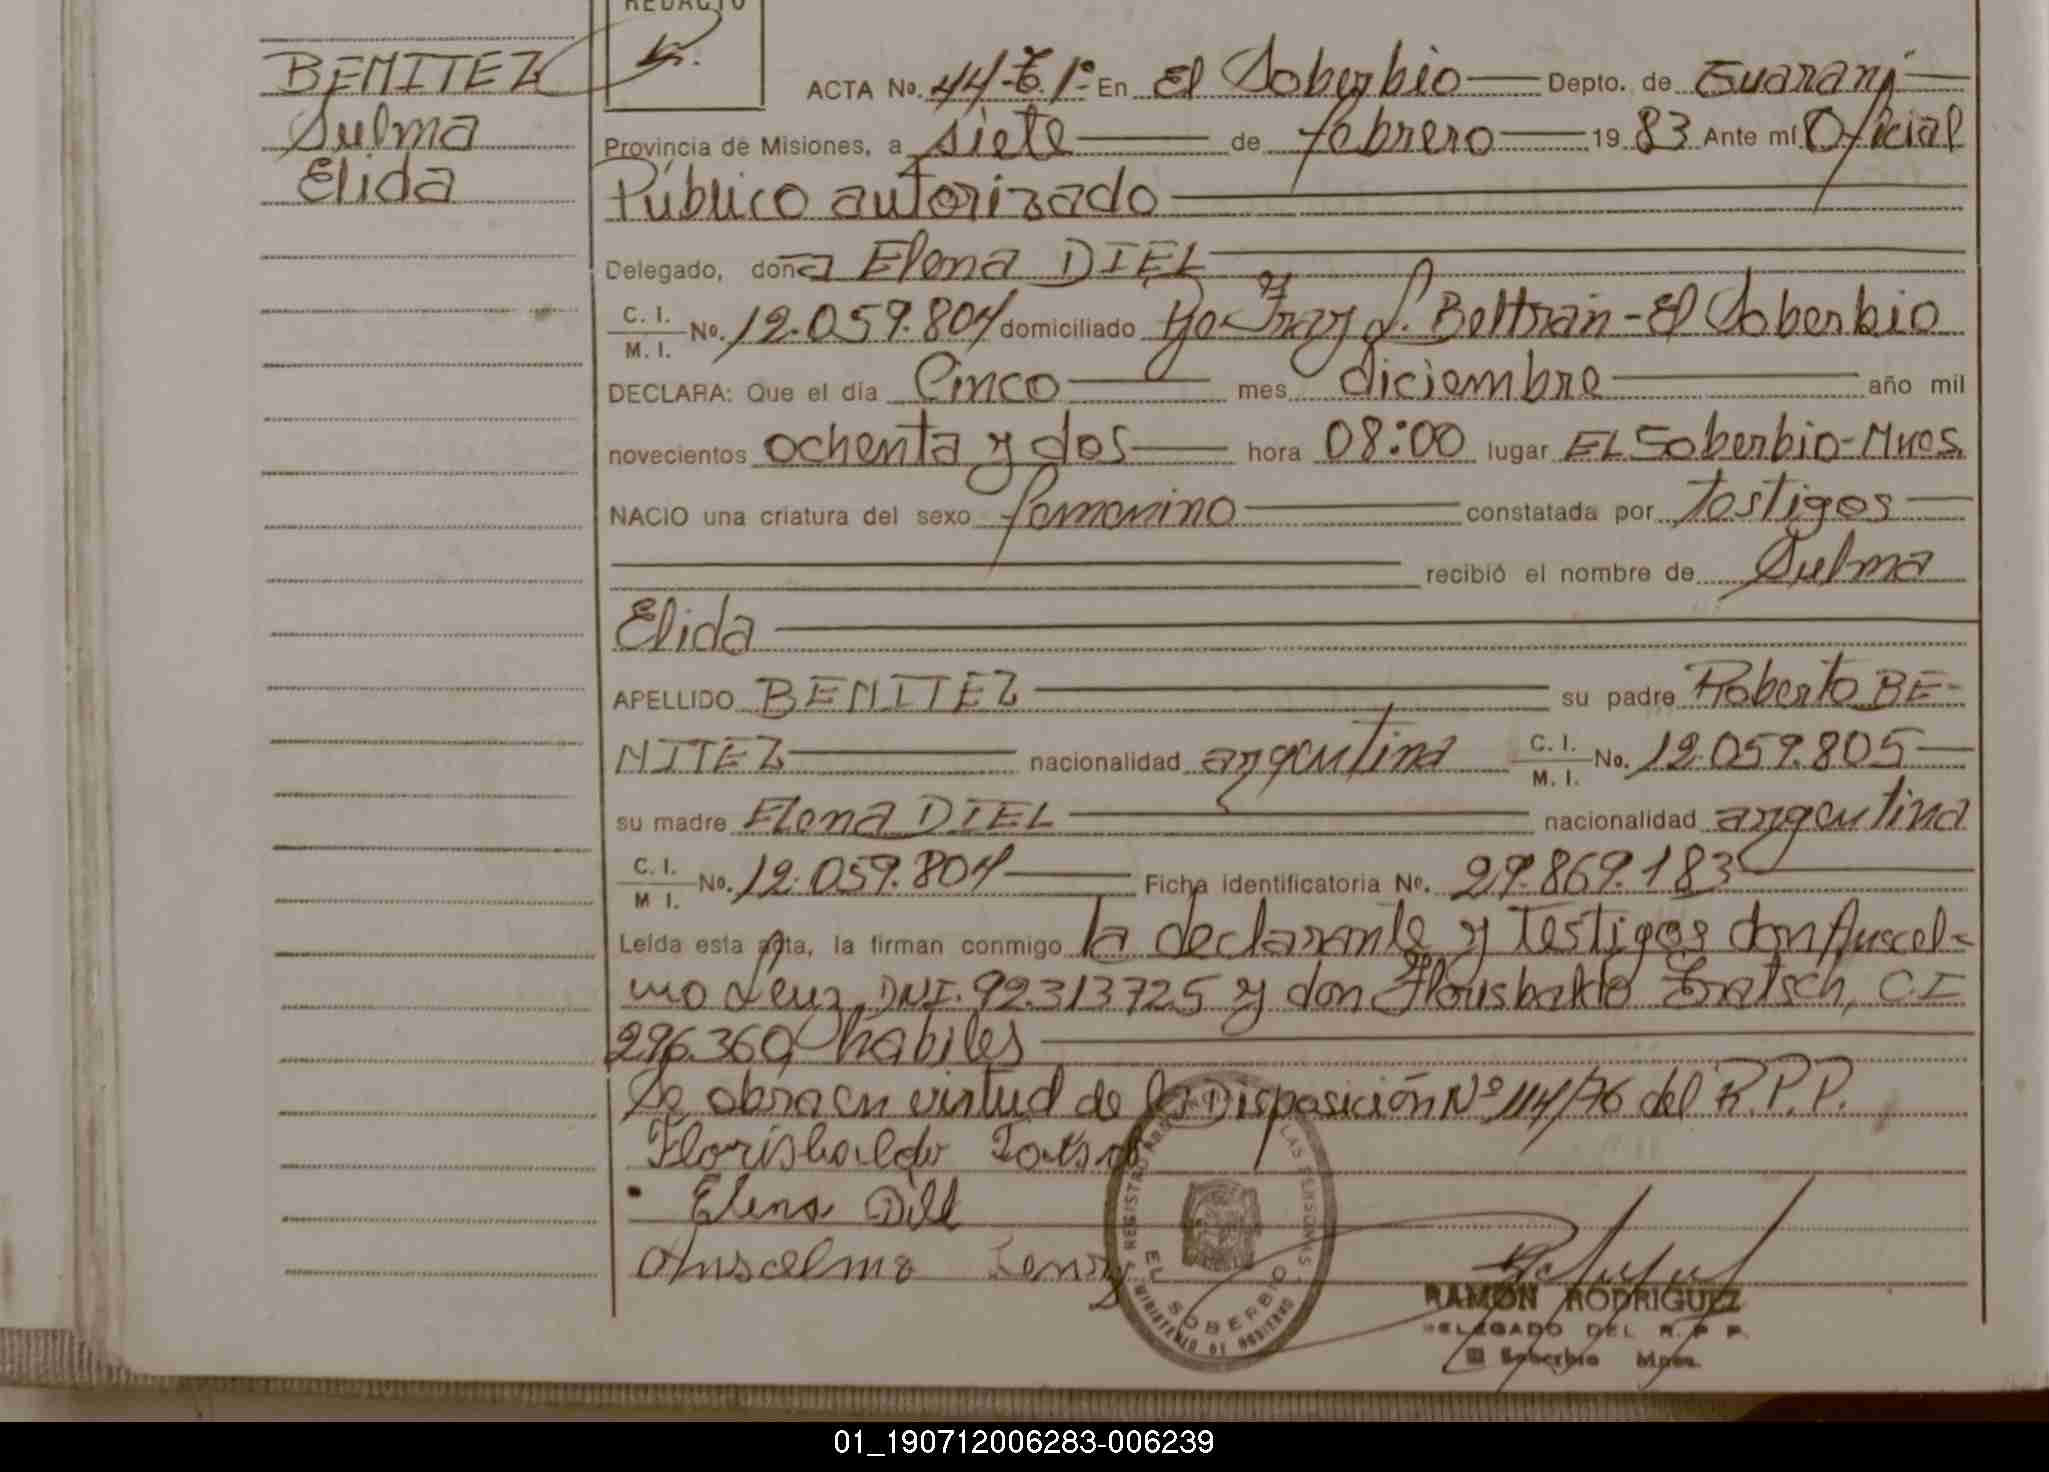 REDACTO
BENITEZ
Sulma
Elida
ACTA No. 44-T.1º- En El Soberbio Depto. de Guaraní
Provincia de Misiones, a siete de febrero 19 83 Ante mí Oficial
Público autorizado
Delegado, doña Elena DIEL
C. I. / M. I. No. 12.059.804 domiciliado Pje Fray L. Beltrán - El Soberbio
DECLARA: Que el día Cinco mes diciembre año mil
novecientos ochenta y dos hora 08:00 lugar EL Soberbio-Mnes.
NACIO una criatura del sexo femenino constatada por testigos
recibió el nombre de Sulma
Elida
APELLIDO BENITEZ su padre Roberto BE-
NITEZ nacionalidad argentina C. I. / M. I. No. 12.059.805
su madre Elena DIEL nacionalidad argentina
C. I. / M I. No. 12.059.804 Ficha identificatoria No. 29.869.183
Leída esta acta, la firman conmigo la declarante y testigos don Anscel-
mo Lenz, DNI. 92.313725 y don C.I
296.360, habiles
Se obra en virtud de la Disposición Nº 114/76 del R.P.P.
Florisbaldo
Elena Dill
Anscelmo Lenz
REGISTRO LAS PERSONAS
EL SOBERBIO
MINISTERIO DE GOBIERNO
RAMON RODRIGUEZ
DELEGADO DEL R. P. P.
El Soberbio Mnes.
01_190712006283-006239